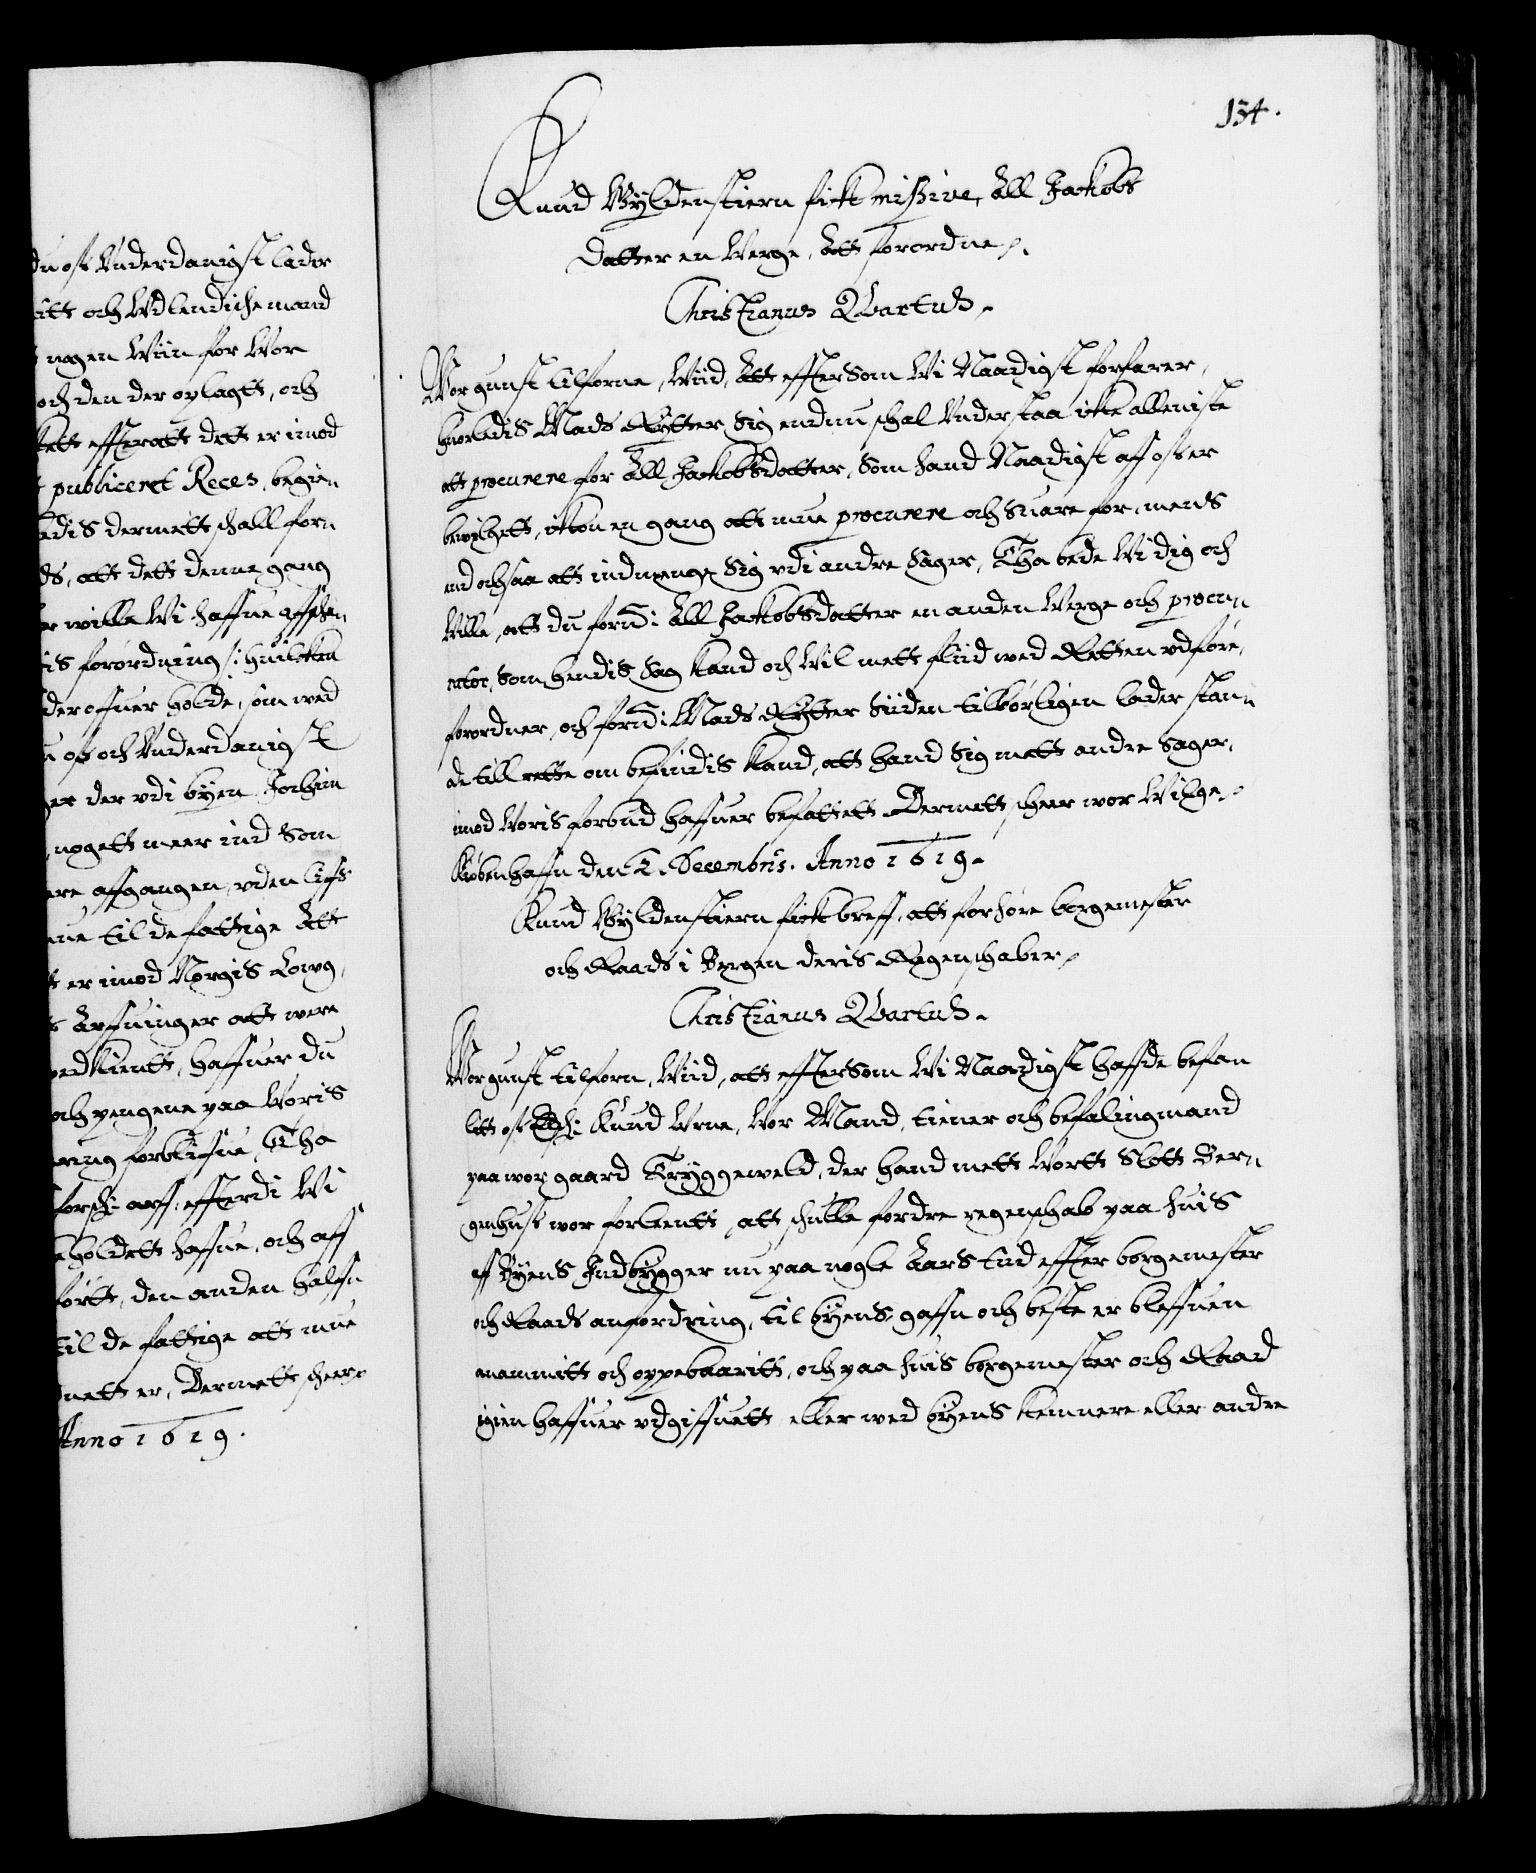 du oss Vnderdanigst lader
itt och Vdlendische mand
nogen Wiin for Wor
och den der oplagtt, och
kett effteratt dett er imod
publiceret Reces, begien
edis dermett schall forn
ds, att dett denne gang
er wille Wi haffue affschen
is forordning /: huilcken
der offuer holde, som wed
oss och Vnderdanigst
ger der vdi byen Jochim
nogett meer ind Som
ere affgangen, vden liffs
nue til de fattige Att
er imod Norgis Lowg,
Arffuinger att were
wed kientt, haffuer du
och pengene paa Woris
ring forbliffue, Tha
forsch: arff, effterdi Wi
eholdett haffue, och aff
förtt, den anden halffu
til de fattige att mue
nett er, Dermett scheer
Anno 1619.
134.
Knud Gyldenstiern fick missive, All Jackobs
datter en Verge, Att forordne
Christianus Quartus.
Wor gunst tilforne, Wiid, Att effterSom Wi Naadigst forfarer,
huorledis Mads Rytter Sig endnu schal Vnderstaa icke alleniste
att procurere for All Jackobsdatter, Som hand Naadigst aff oss er
bewilgett, ickon en gang att mue procurere och Suare for, mens
end ochsaa att indmenge Sig vdi andre Sager, Tha bede Wi dig och
Wille, att du fornd: All Jackobsdatter en anden Werge och procu
rator, Som hendis Sag kand och Wil mett fliid wed Retten vdföre,
forordner, och fornd: Mads Rytter Siiden tilbörligen lader stan
de till rette om befindis kand, att hand Sig mett andre Sager,
imod Woris forbud haffuer befattett Dermett scheer wor Wilge
Kiöbenhaffn den 2. Decembris. Anno 1619.
Knud Gyldenstiern fick breff, att forhöre borgemester
och Raads i Bergen deris Regenschaber
Christianus Quartus.
Wor gunst tilforn, Wiid, att effterSom Wi Naadigst haffde befa
litt oss Elsch: Knud Vrne, Wor Mand, tiener och befalingmand
paa wor gaard Tryggeweld, der hand mett Wortt Slott Ber
genhuss wor forleentt, att schulle fordre regenschab paa huis
aff Byens Indbygger nu paa nogle Aars tiid effter borgemester
och Raads anfordring, til byens gaffn och beste er bleffuen
anammitt och oppebaaritt, och paa huis borgemester och Raad
igien haffuer vdgiffuett eller wed byens kemnere eller andre